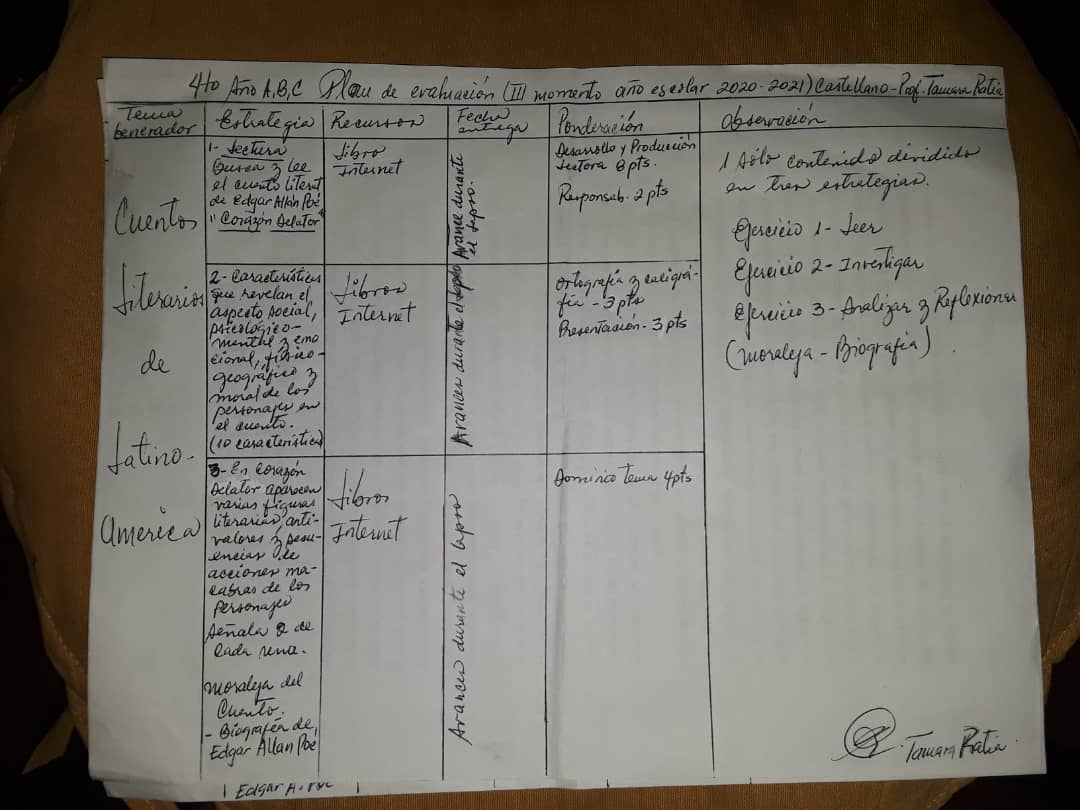 4to Año A,B,C Plan de evaluación (III momento año escolar 2020-2021) Castellano - Prof. Tamara Ratia
Tema Generador
Estrategia
Recursos
Fecha entrega
Ponderación
Observación
Cuentos
Literarios
de
Latino-
America
1- Lectura
Busca y lee
el cuento literat
de Edgar Allan Poe
"Corazón Delator"
Libro
Internet
Avance durante
el lapso.
Desarrollo y Producción
Lectora 8 pts.
Responsab. 2 pts
1 sólo contenido dividido
en tres estrategias.
Ejercicio 1- Leer
Ejercicio 2- Investigar
Ejercicio 3- Analizar y Reflexionar
(Moraleja - Biografía)
2- Características
que revelan el
aspecto social,
psicológico-
mental y emo
cional, físico-
geográfico y
moral de los
personajes en
el cuento.
(10 característica)
Libros
Internet
Avances durante el lapso
Ortografía y caligra-
fía - 3 pts
Presentación - 3 pts
3- En Corazón
Delator aparecen
varias figuras
literarias, anti-
valores y secu-
encias de
acciones ma-
cabras de los
personajes
Señala 2 de
cada una.
Moraleja del
Cuento.
- Biografía de
Edgar Allan Poe
Libros
Internet
Avances durante el lapso
Dominio tema 4pts
Tamara Ratia
Edgar A. Poe